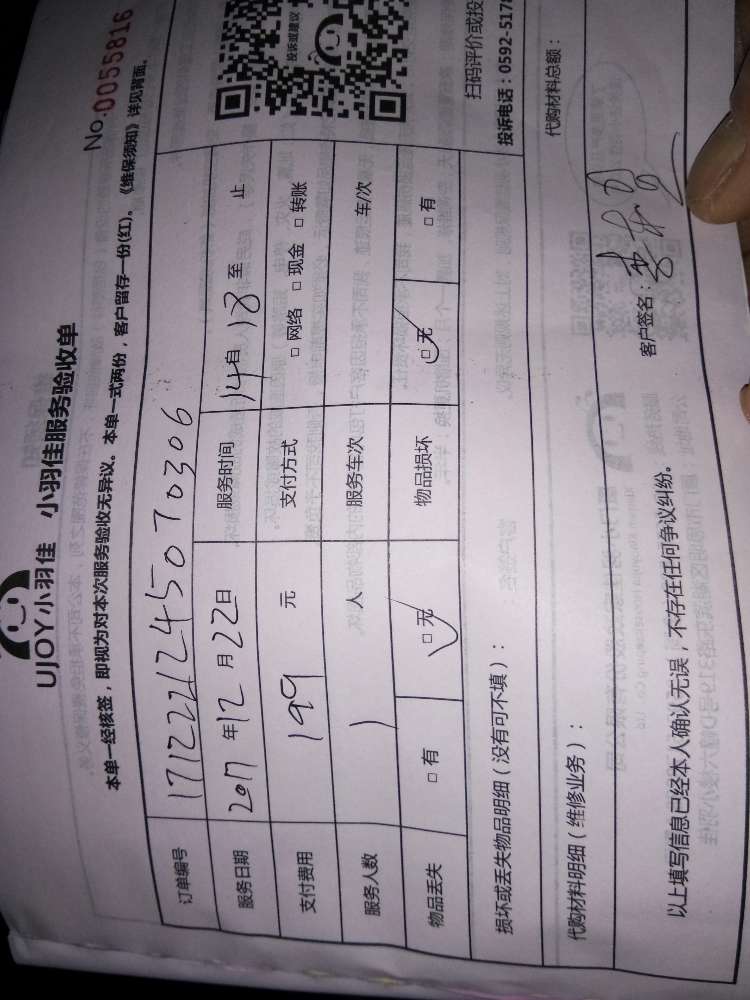 UJOY小羽佳 小羽佳服务验收单
No.0055816
本单一经核签，即视为对本次服务验收无异议。本单一式两份，客户留存一份(红)。《维保须知》详见背面。
订单编号 1712221245070306
服务日期 2017年12月22日 服务时间 14自18至 止
支付费用 199 元 支付方式 □网络 □现金 □转账
服务人数 1 人 服务车次 车/次
物品丢失 □有 □无 物品损坏 □无 □有
损坏或丢失物品明细（没有可不填）：
代购材料明细（维修业务）：
代购材料总额：
以上填写信息已经本人确认无误，不存在任何争议纠纷。
客户签名：
投诉或建议
扫码评价或投
投诉电话：0592-517